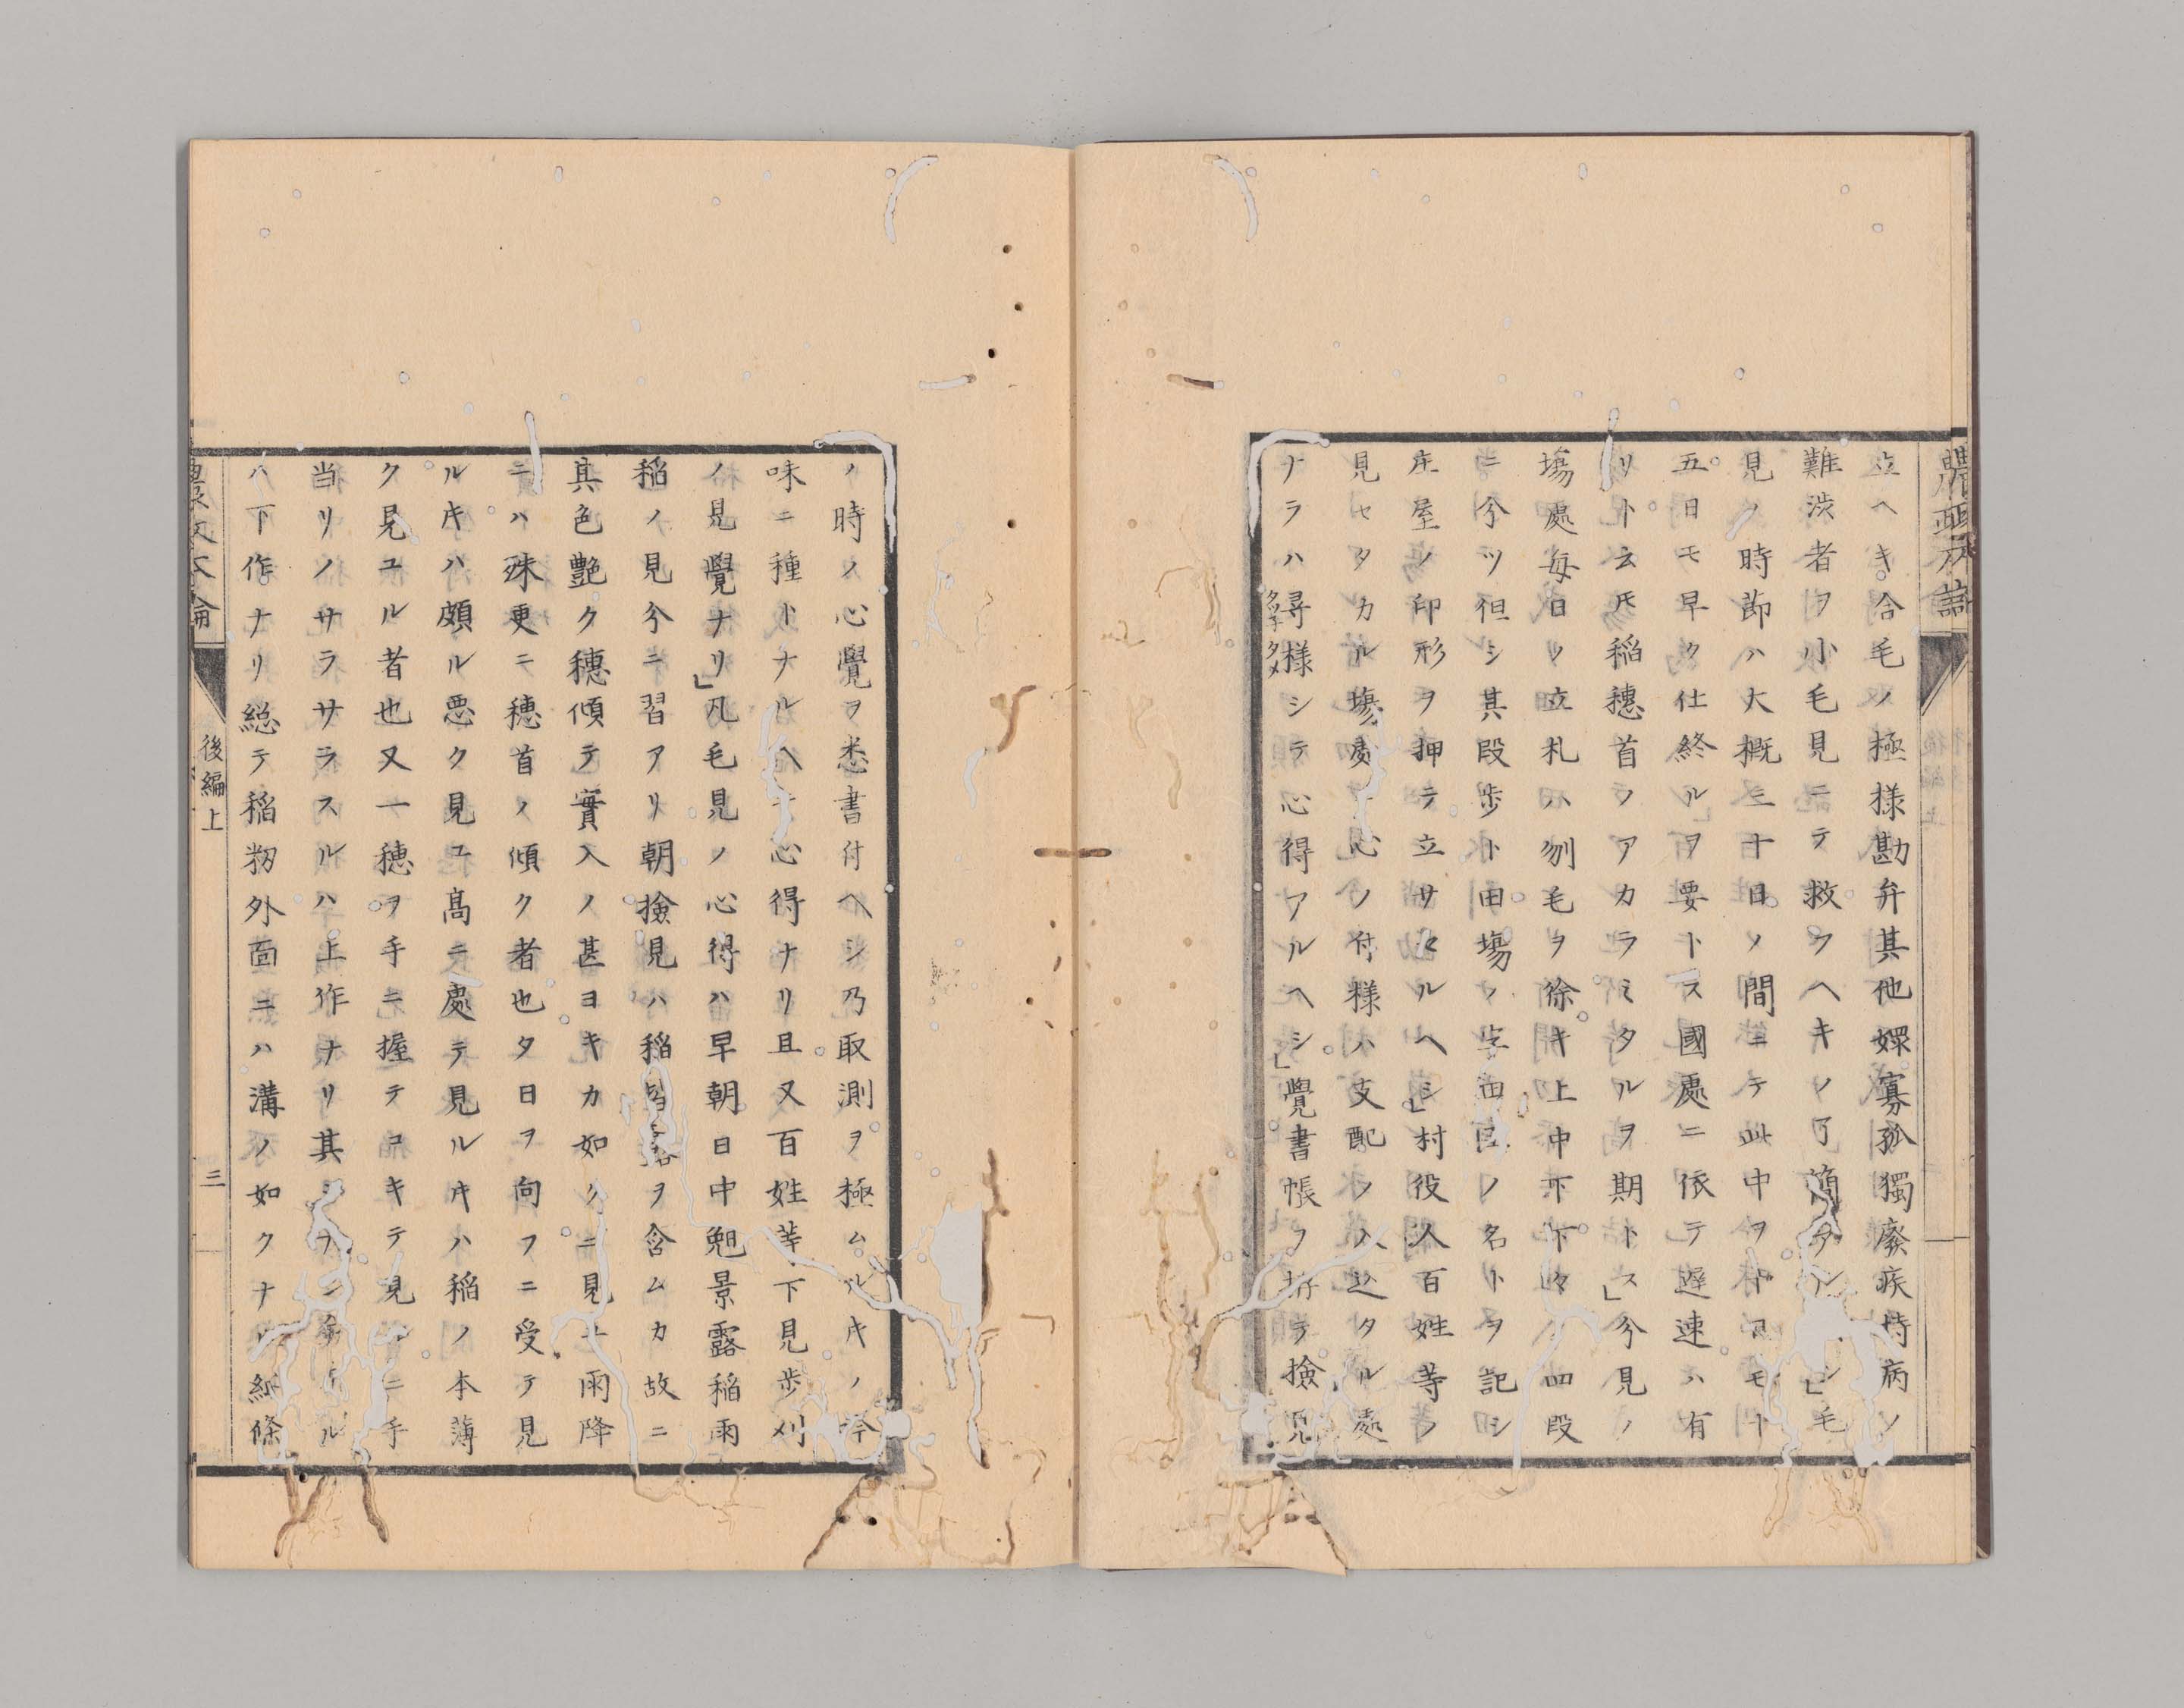 立ヘキ合毛ノ極様勘弁其他嫘寡孤獨廢疾時病ノ
難渋者ヲ小毛見ニテ救フヘキノ了簡アルヘシ」毛
見ノ時節ハ大概三十日ノ間ニテ此中ヲ十日モ
五日モ早ク仕終ルヲ要トス國處ニ依テ遅速ハ有
リト云𪜈稲穂首ヲアカラミタルヲ期トス」分見ノ
塲處毎日ノ立札ハ刎毛ヲ徐キ上中下下々ノ四段
ニ分ツ但シ其段歩ト田塲ノ字田主ノ名トヲ記シ
庄屋ノ印形ヲ押テ立サスルヘシ」村役人百姓等ノ
見セタカル塲處ト心ノ付様ハ支配ノ入込タル處
ナラハ尋様シシテ心得アルヘシ」覺書帳ヲ拵テ撿見
タツ子タメ
ノ時ノ心覺ヲ悉書付ヘシ乃取測ヲ極ムル𪜈ノ吟
味ニ種トナルヘキ心得ナリ且又百姓等下見歩刈
ノ見覺ナリ」凡毛見ノ心得ハ早朝日中晩景露稲雨
稲ノ見分ニ習アリ朝撿見ハ稲皆露ヲ含ムカ故ニ
其色艶ク穂傾テ實入ノ甚ヨキカ如クニ見ユ雨降
ニハ殊更ニ穂首ノ傾ク者也夕日ヲ向フニ受テ見
ルキハ頗ル悪ク見ユ髙キ處テ見ルキハ稲ノ本薄
ク見ユル者也又一穂ヲ手ニ握テコキテ見ルニ手
当リノサラサラスルハ上作ナリ其
ハ下作ナリ総テ稲籾外面ニハ溝ノ如クナル紋條
後編上
三